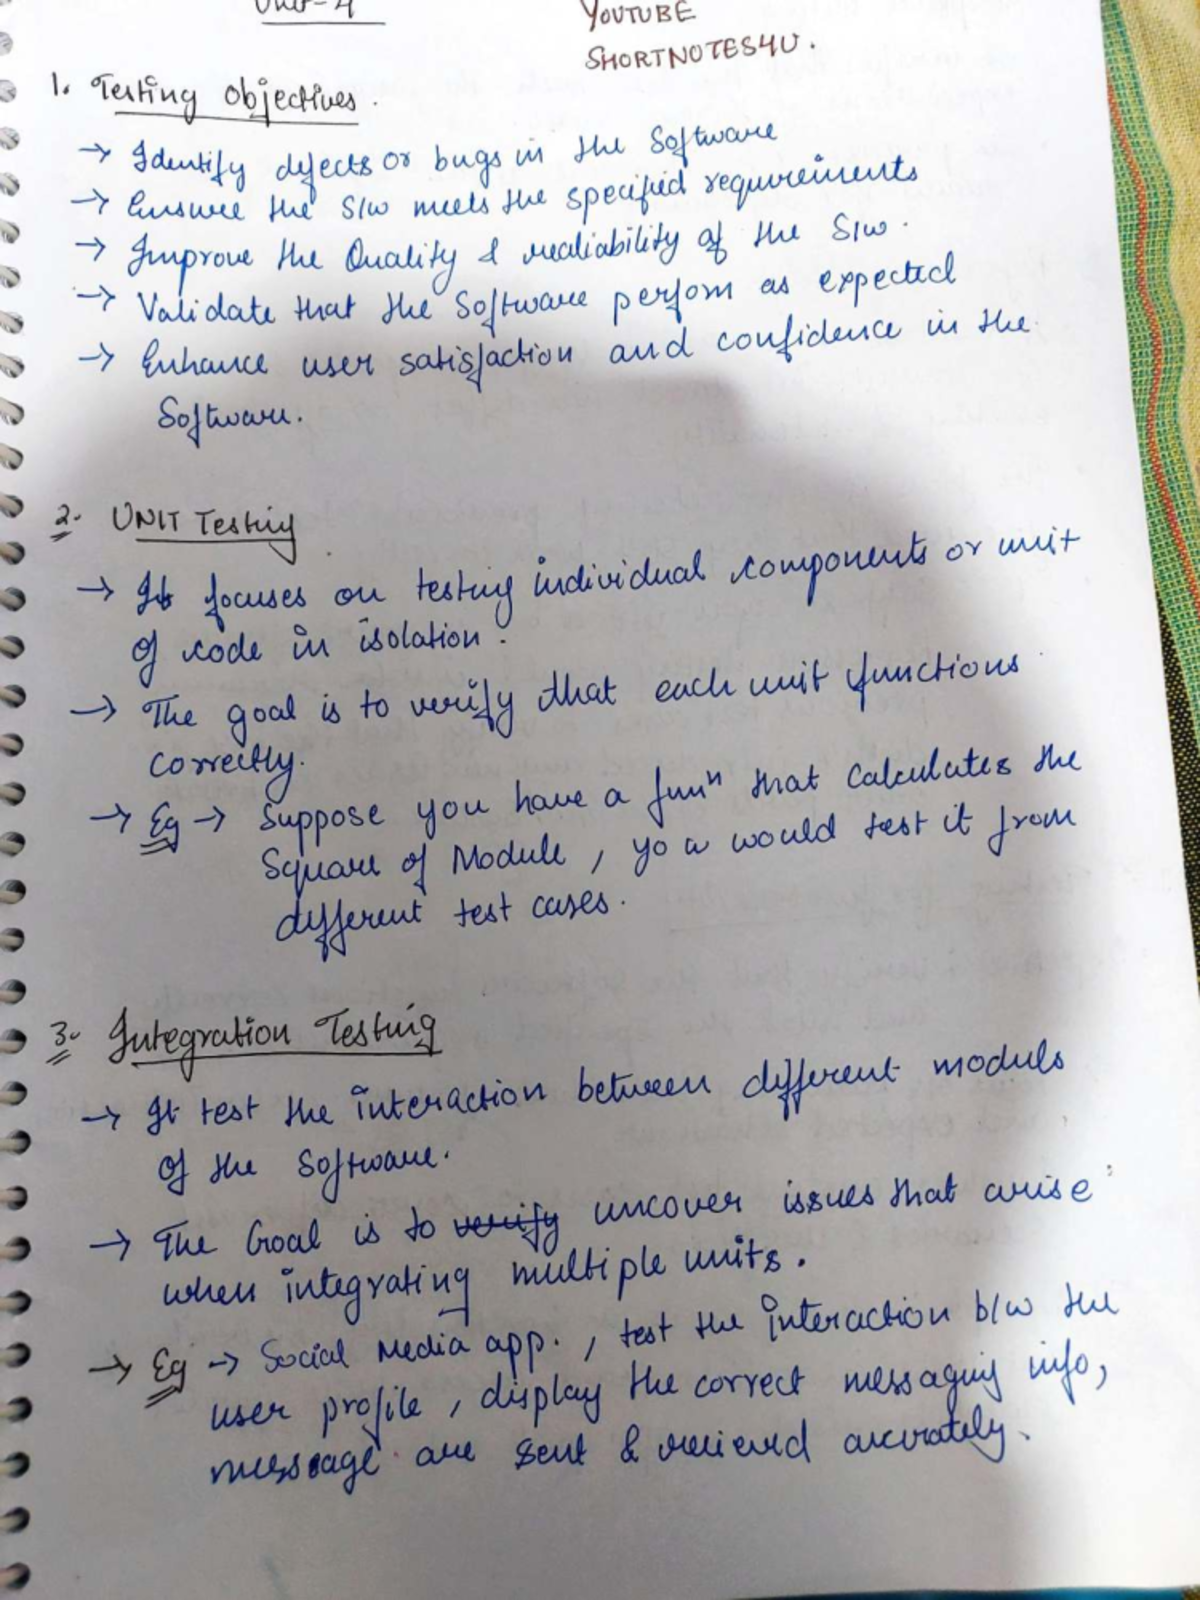 Unit-4
YOUTUBE
SHORTNOTES4U.
1. Testing Objectives.
→ Identify defects or bugs in the Software
→ Ensure the S/w meets the specified requirements
→ Improve the Quality & realiability of the S/w.
→ Validate that the Software perfom as expected
→ Enhance user satisfaction and confidence in the
Software.
2. UNIT Testing
→ It focuses on testing individual components or unit
of code in isolation.
→ The goal is to verify that each unit functions
correctly.
→ Eg → Suppose you have a funⁿ that calculates the
Square of Module, you would test it from
different test cases.
3. Integration Testing
→ It test the interaction between different moduls
of the Software.
→ The Goal is to verify uncover issues that arise
when integrating multiple units.
→ Eg → Social Media app., test the interaction b/w the
user profile, display the correct messaging info,
message are sent & recieved accurately.